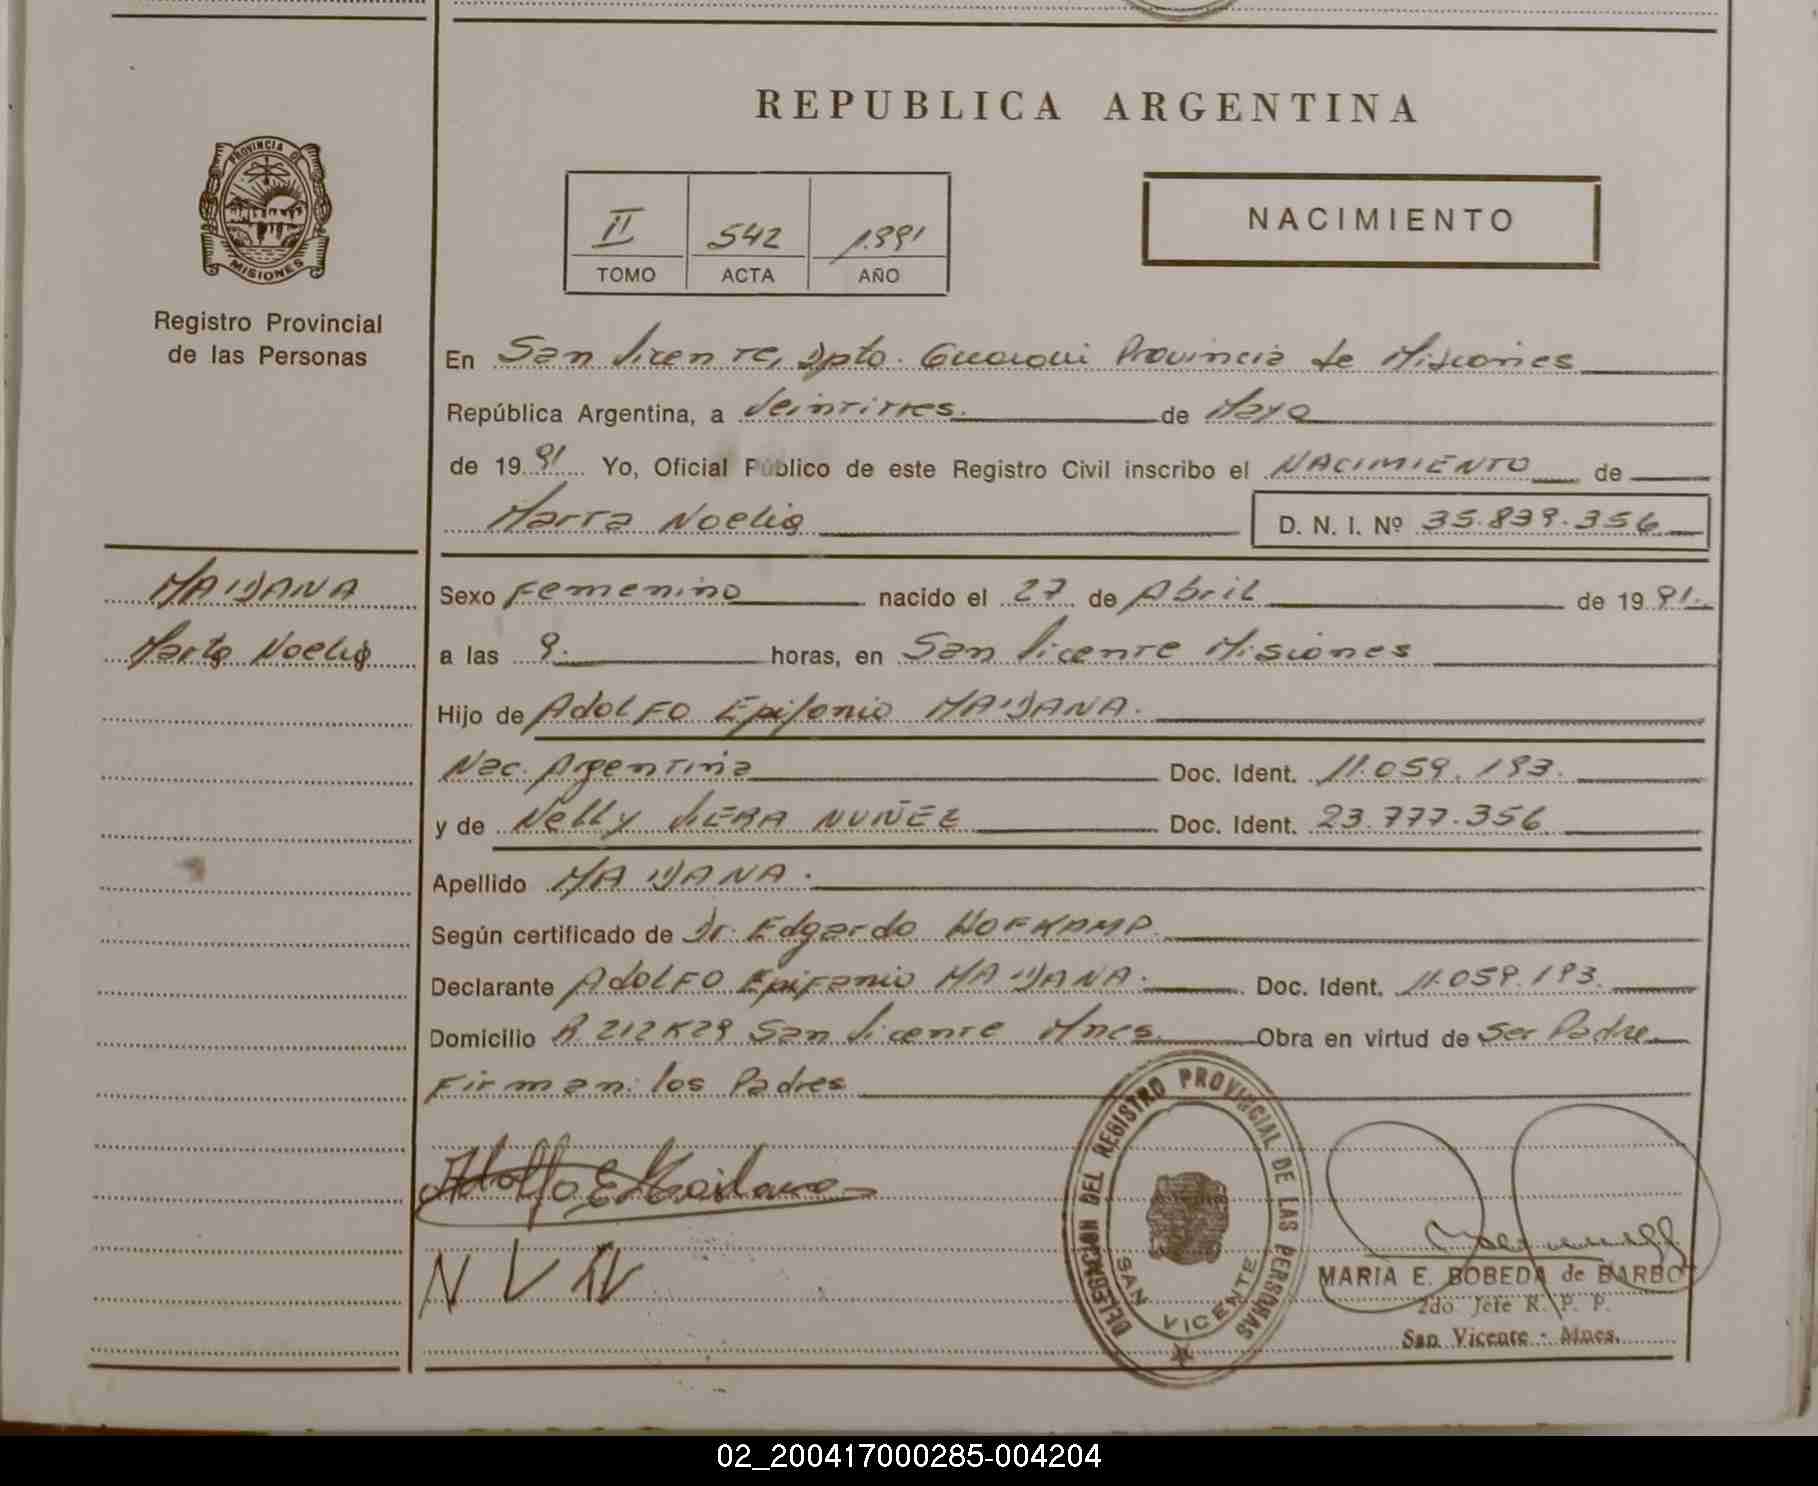 REPUBLICA ARGENTINA
PROVINCIA DE
MISIONES
Registro Provincial
de las Personas
II 542 1991
TOMO ACTA AÑO
NACIMIENTO
En San Vicente, Dpto. Guaraní Provincia de Misiones
República Argentina, a Veintitres. de Mayo
de 1991 Yo, Oficial Público de este Registro Civil inscribo el NACIMIENTO de
Marta Noelia D. N. I. Nº 35.839.356
MAIDANA
Marta Noelia
Sexo Femenino nacido el 27 de Abril de 1991.
a las 9. horas, en San Vicente Misiones
Hijo de ADOLFO Epifanio MAIDANA.
Nac. Argentina Doc. Ident. 11.059.193.
y de Nelly VIERA NUÑEZ Doc. Ident. 23.777.356
Apellido MAIDANA.
Según certificado de Dr. Edgardo HOFKAMP.
Declarante ADOLFO Epifanio MAIDANA. Doc. Ident. 11.059.193.
Domicilio R. 212 K29 San Vicente Mnes. Obra en virtud de Ser Padre
Firman: los Padres
Adolfo E Maidana
N V N
DELEGACION DEL REGISTRO PROVINCIAL DE LAS PERSONAS
SAN VICENTE
MARIA E. BOBEDA de BARBO
2do Jefe R. P. P.
San Vicente - Mnes.
02_200417000285-004204